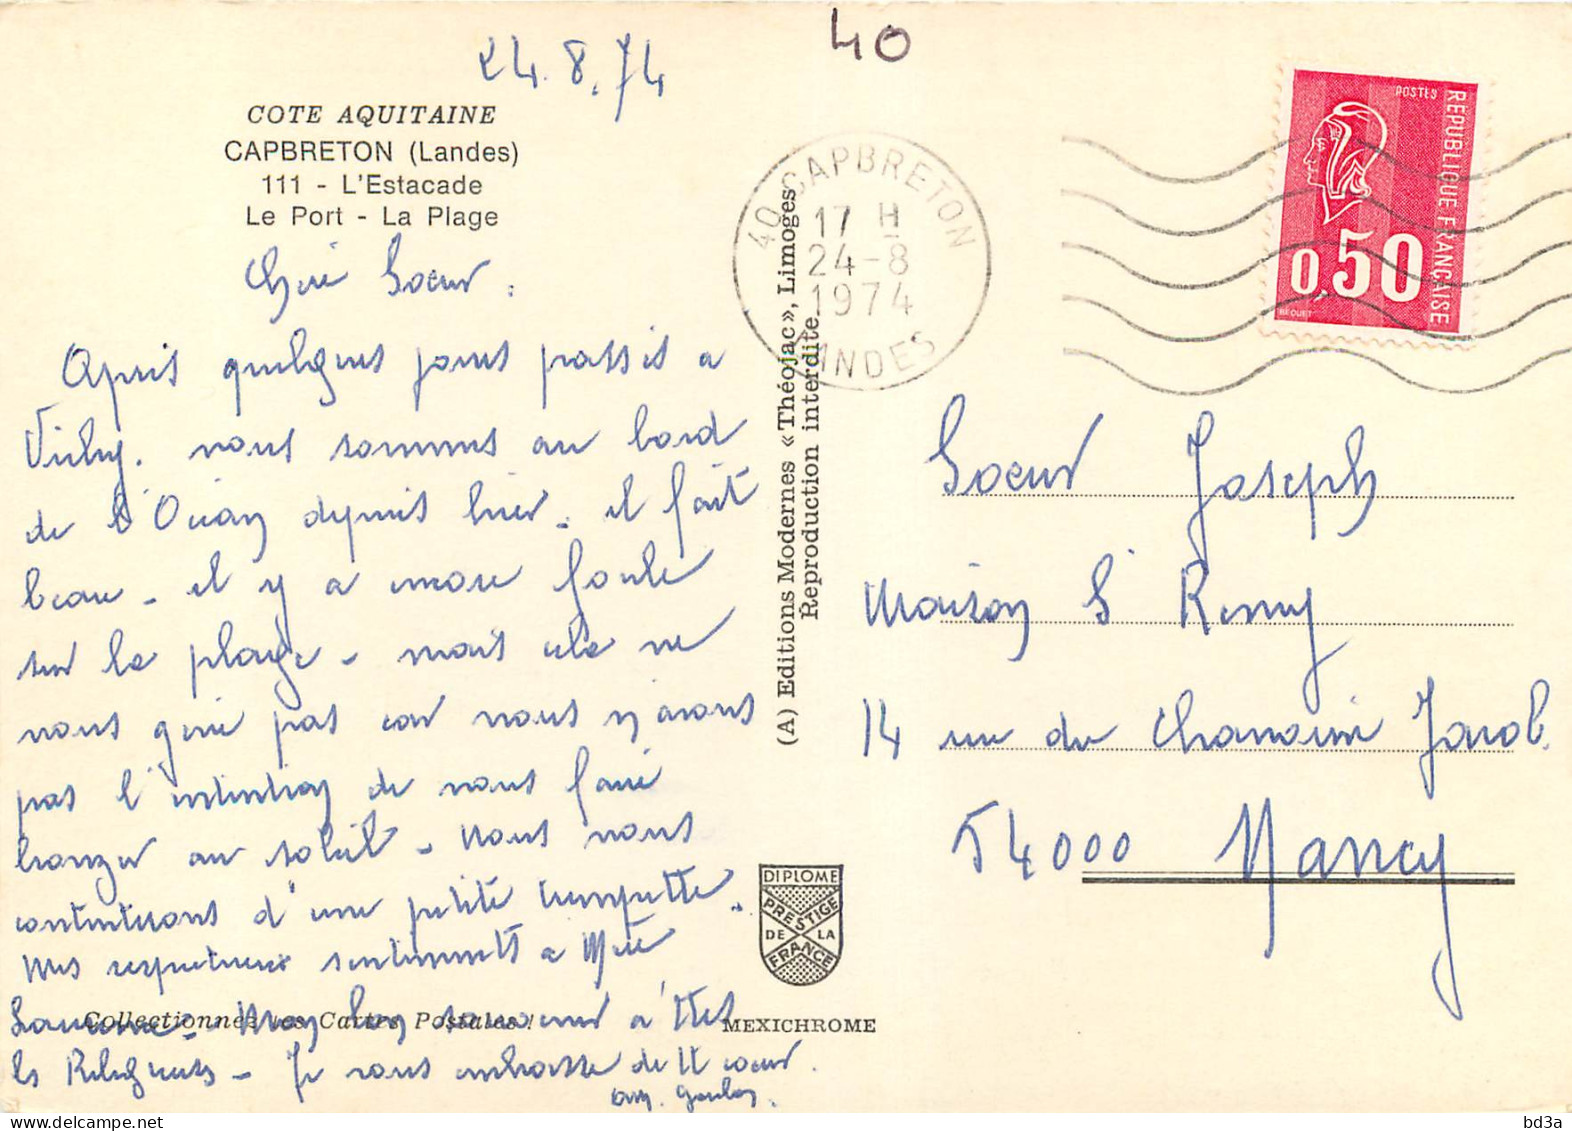 40
24.8.74
COTE AQUITAINE
CAPBRETON (Landes)
111 - L'Estacade
Le Port - La Plage
Chère Soeur.
Après quelques jours passés a
Vichy. nous sommes au bord
de l'Océan depuis hier. il fait
beau - il y a encore foule
sur la plage - mais cela ne
nous gêne pas car nous n'avons
pas l'intention de nous faire
bronzer au soleil - Nous nous
contenterons d'une petite trempette.
Mes respectueux sentiments a Mère
- Mon bon souvenir à ttes
les Religieuses - Je vous embrasse de tt coeur.
Collectionnez les Cartes Postales !
(A) Editions Modernes «Théojac», Limoges
Reproduction interdite
DIPLOME
PRESTIGE
DE LA
FRANCE
MEXICHROME
40 CAPBRETON
17 H
24-8
1974
LANDES
POSTES
REPUBLIQUE FRANÇAISE
0,50
BEQUET
Soeur Joseph
Maison St Remy
14 rue du Chanoine Jacob.
54000 Nancy
bd3a